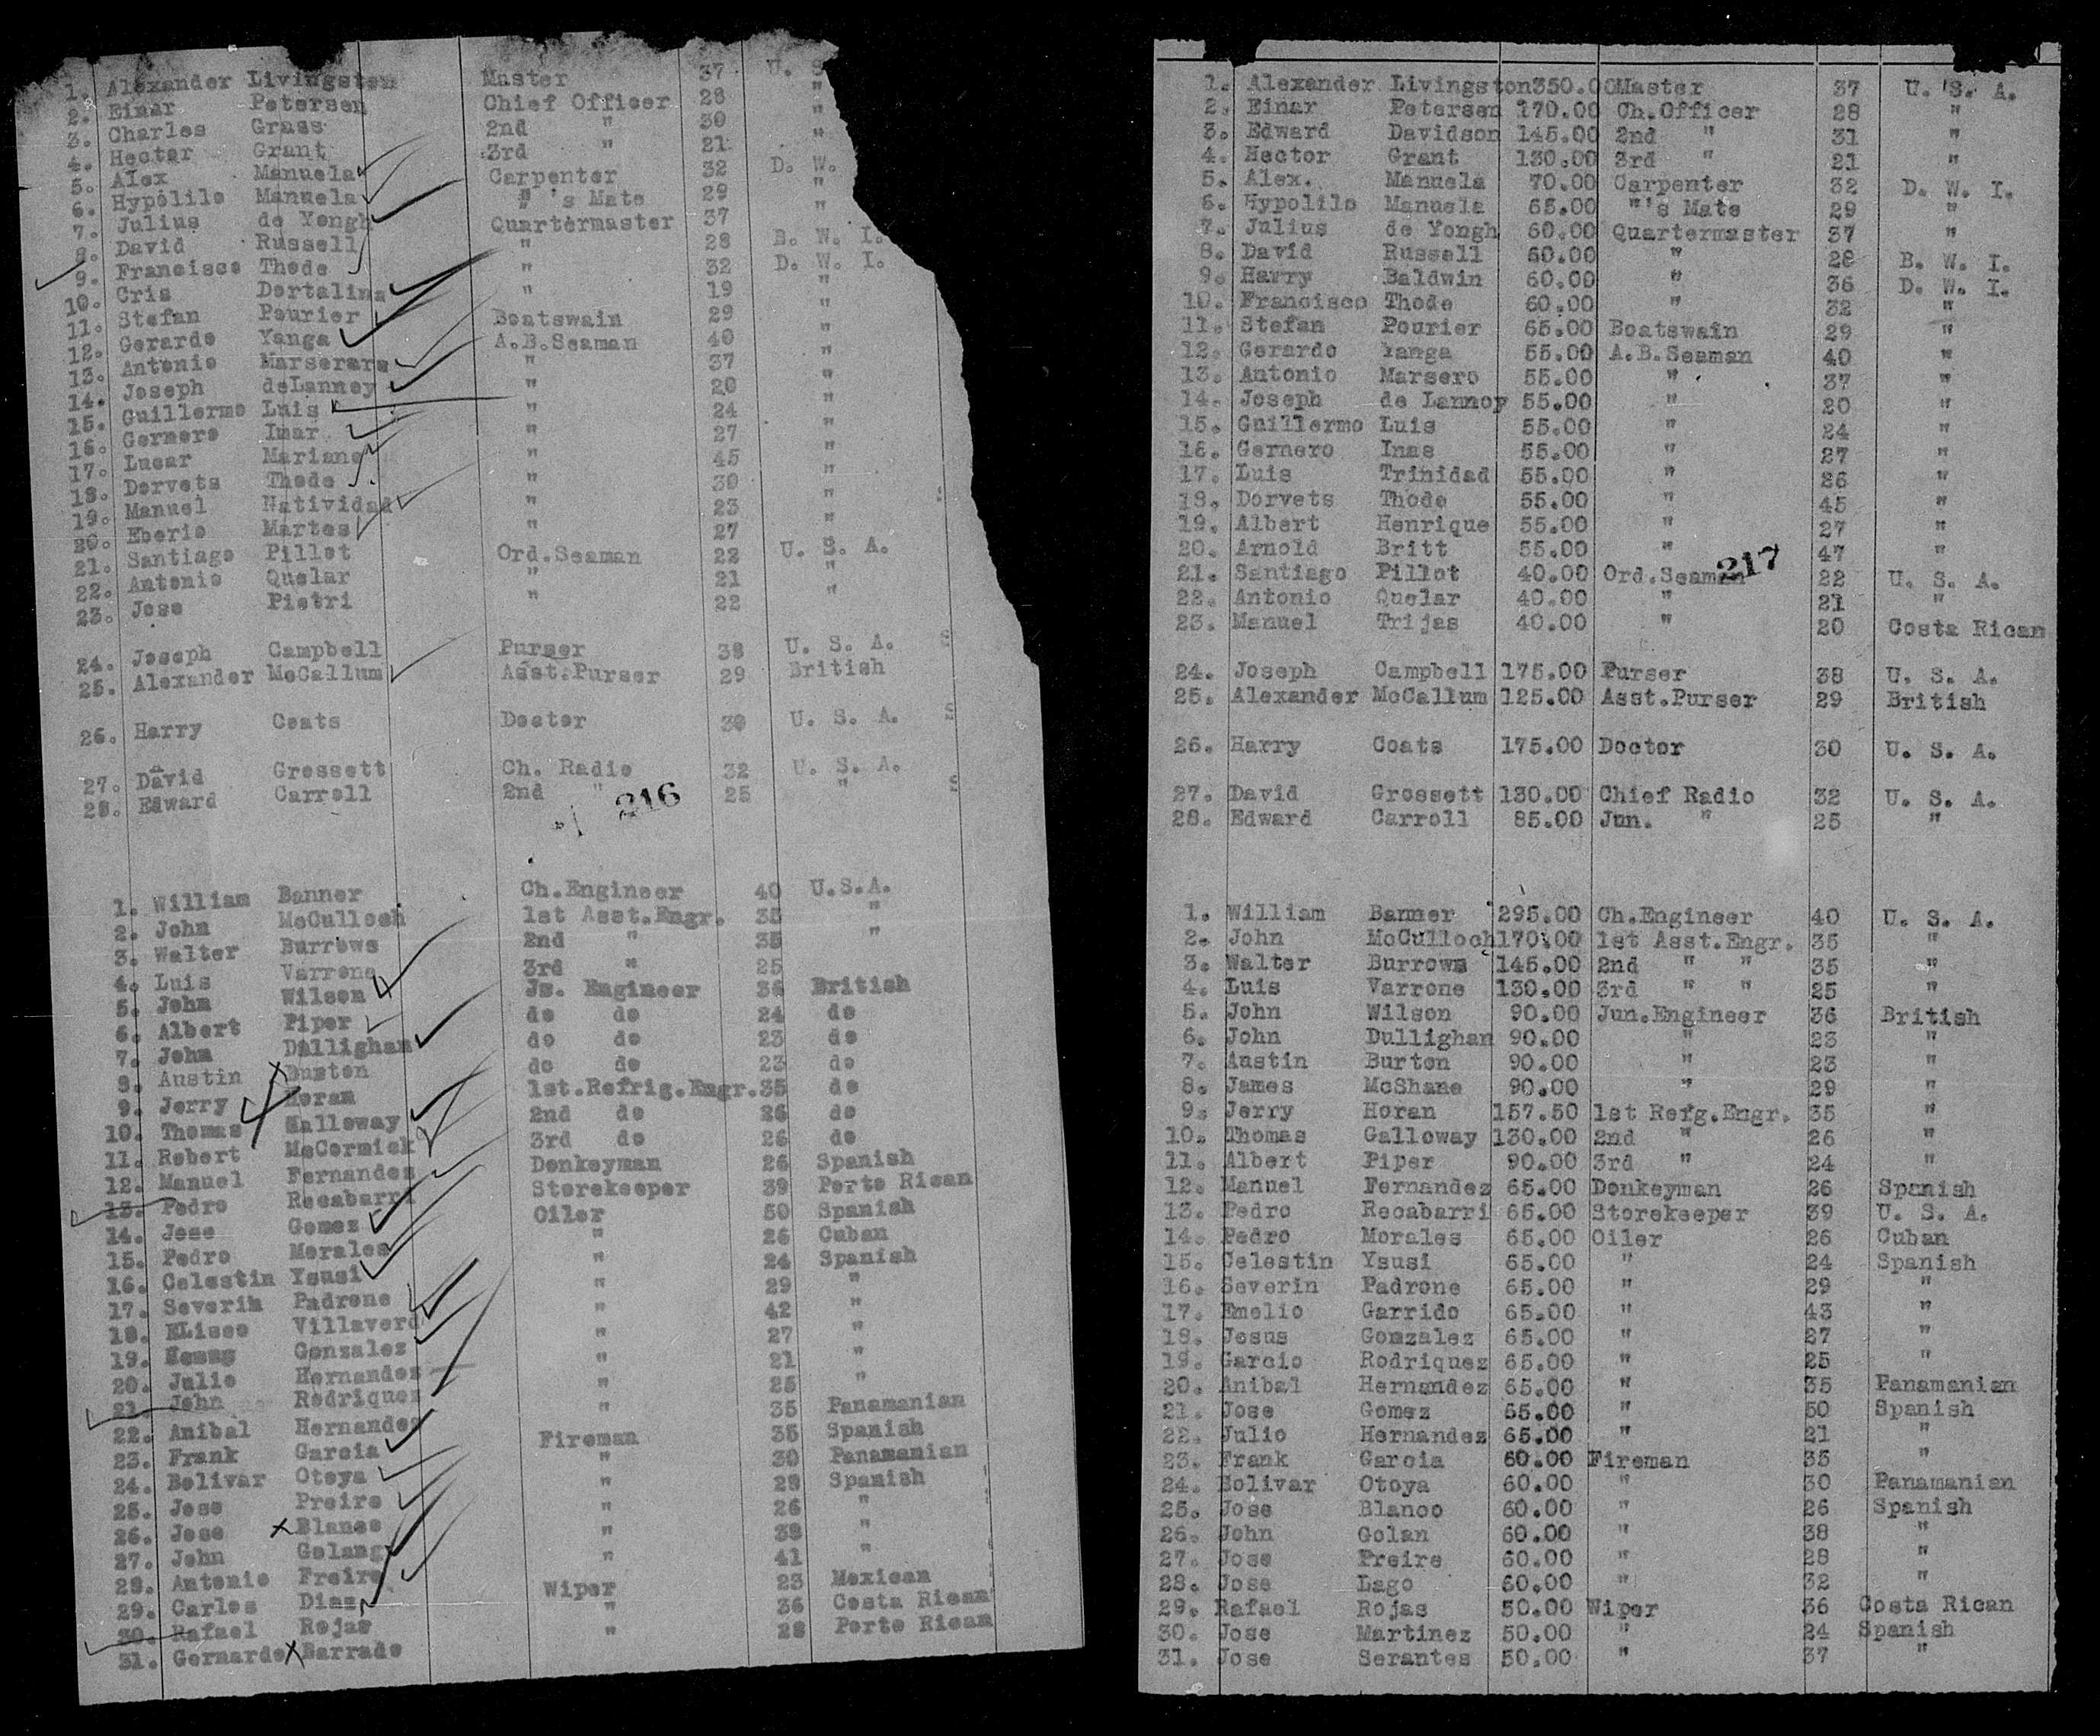 1. Alexander Livingston Master 37 U. S
2. Einar Petersen Chief Officer 28 "
3. Charles Grass 2nd " 30 "
4. Hector Grant 3rd " 21 "
5. Alex Manuela Carpenter 32 D. W.
6. Hypolilo Manuela " 's Mate 29 "
7. Julius de Yongh Quartermaster 37 "
8. David Russell " 28 B. W. I.
9. Francisco Thode " 32 D. W. I.
10. Cris Dortalina " 19 "
11. Stefan Pourier Boatswain 29 "
12. Gerardo Yanga A.B.Seaman 40 "
13. Antonio Marserara " 37 "
14. Joseph deLannoy " 20 "
15. Guillermo Luis " 24 "
16. Gernero Imar " 27 "
17. Lucar Mariano " 45 "
18. Dorvets Thode " 30 "
19. Manuel Natividad " 23 "
20. Eberio Martes " 27 "
21. Santiago Pillot Ord.Seaman 22 U. S. A.
22. Antonio Quelar " 21 "
23. Jose Pietri " 22 "
24. Joseph Campbell Purser 38 U. S. A.
25. Alexander McCallum Asst.Purser 29 British
26. Harry Coats Doctor 30 U. S. A.
27. David Grossett Ch. Radio 32 U. S. A.
28. Edward Carroll 2nd " 25 "
216
1. William Banner Ch.Engineer 40 U.S.A.
2. John McCulloch 1st Asst.Engr. 35 "
3. Walter Burrows 2nd " 35 "
4. Luis Varrone 3rd " 25
5. John Wilson Jr. Engineer 36 British
6. Albert Piper do do 24 do
7. John Dullighan do do 23 do
8. Austin Burton do do 23 do
9. Jerry Horan 1st.Refrig.Engr. 35 do
10. Thomas Galloway 2nd do 26 do
11. Robert McCormick 3rd do 26 do
12. Manuel Fernandes Donkeyman 26 Spanish
13. Pedro Recabarri Storekeeper 39 Porto Rican
14. Jose Gomez Oiler 50 Spanish
15. Pedro Morales " 26 Cuban
16. Celestin Ysusi " 24 Spanish
17. Severin Padrone " 29 "
18. ELiseo Villaverd " 42 "
19. Gonzales " 27 "
20. Julio Hernandes " 21 "
21. John Rodriquez " 25 "
22. Anibal Hernandez " 35 Panamanian
23. Frank Garcia Fireman 35 Spanish
24. Bolivar Otoya " 30 Panamanian
25. Jose Freire " 28 Spanish
26. Jose Blanco " 26 "
27. John Golang " 38 "
28. Antonio Freire " 41 "
29. Carlos Diaz Wiper 23 Mexican
30. Rafael Rojas " 36 Costa Rican
31. Gernardo Barrado " 28 Porto Rican
1. Alexander Livingston 350.00 Master 37 U. S. A.
2. Einar Petersen 170.00 Ch.Officer 28 "
3. Edward Davidson 145.00 2nd " 31 "
4. Hector Grant 130.00 3rd " 21 "
5. Alex. Manuela 70.00 Carpenter 32 D. W. I.
6. Hypolilo Manuela 65.00 "'s Mate 29 "
7. Julius de Yongh 60.00 Quartermaster 37 "
8. David Russell 60.00 " 28 B. W. I.
9. Harry Baldwin 60.00 " 36 D. W. I.
10. Francisco Thode 60.00 " 32 "
11. Stefan Pourier 65.00 Boatswain 29 "
12. Gerardo Yanga 55.00 A.B.Seaman 40 "
13. Antonio Marsero 55.00 " 37 "
14. Joseph de Lannoy 55.00 " 20 "
15. Guillermo Luis 55.00 " 24 "
16. Gernero Inas 55.00 " 27 "
17. Luis Trinidad 55.00 " 26 "
18. Dorvets Thode 55.00 " 45 "
19. Albert Henrique 55.00 " 27 "
20. Arnold Britt 55.00 " 47 "
217
21. Santiago Pillot 40.00 Ord.Seaman 22 U. S. A.
22. Antonio Quelar 40.00 " 21 "
23. Manuel Trijas 40.00 " 20 Costa Rican
24. Joseph Campbell 175.00 Purser 38 U. S. A.
25. Alexander McCallum 125.00 Asst.Purser 29 British
26. Harry Coats 175.00 Doctor 30 U. S. A.
27. David Grossett 130.00 Chief Radio 32 U. S. A.
28. Edward Carroll 85.00 Jun. " 25 "
1. William Banner 295.00 Ch.Engineer 40 U. S. A.
2. John McCulloch 170.00 1st Asst.Engr. 35 "
3. Walter Burrows 145.00 2nd " " 35 "
4. Luis Varrone 130.00 3rd " " 25 "
5. John Wilson 90.00 Jun.Engineer 36 British
6. John Dullighan 90.00 " 23 "
7. Austin Burton 90.00 " 23 "
8. James McShane 90.00 " 29 "
9. Jerry Horan 157.50 1st Refg.Engr. 35 "
10. Thomas Galloway 130.00 2nd " 26 "
11. Albert Piper 90.00 3rd " 24 "
12. Manuel Fernandez 65.00 Donkeyman 26 Spanish
13. Pedro Recabarri 65.00 Storekeeper 39 U. S. A.
14. Pedro Morales 65.00 Oiler 26 Cuban
15. Celestin Ysusi 65.00 " 24 Spanish
16. Severin Padrone 65.00 " 29 "
17. Emelio Garrido 65.00 " 43 "
18. Jesus Gonzalez 65.00 " 27 "
19. Garcio Rodriquez 65.00 " 25 "
20. Anibal Hernandez 65.00 " 35 Panamanian
21. Jose Gomez 65.00 " 50 Spanish
22. Julio Hernandez 65.00 " 21 "
23. Frank Garcia 60.00 Fireman 35 "
24. Bolivar Otoya 60.00 " 30 Panamanian
25. Jose Blanco 60.00 " 26 Spanish
26. John Golan 60.00 " 38 "
27. Jose Freire 60.00 " 28 "
28. Jose Lago 60.00 " 32 "
29. Rafael Rojas 50.00 Wiper 36 Costa Rican
30. Jose Martinez 50.00 " 24 Spanish
31. Jose Serantes 50.00 " 37 "